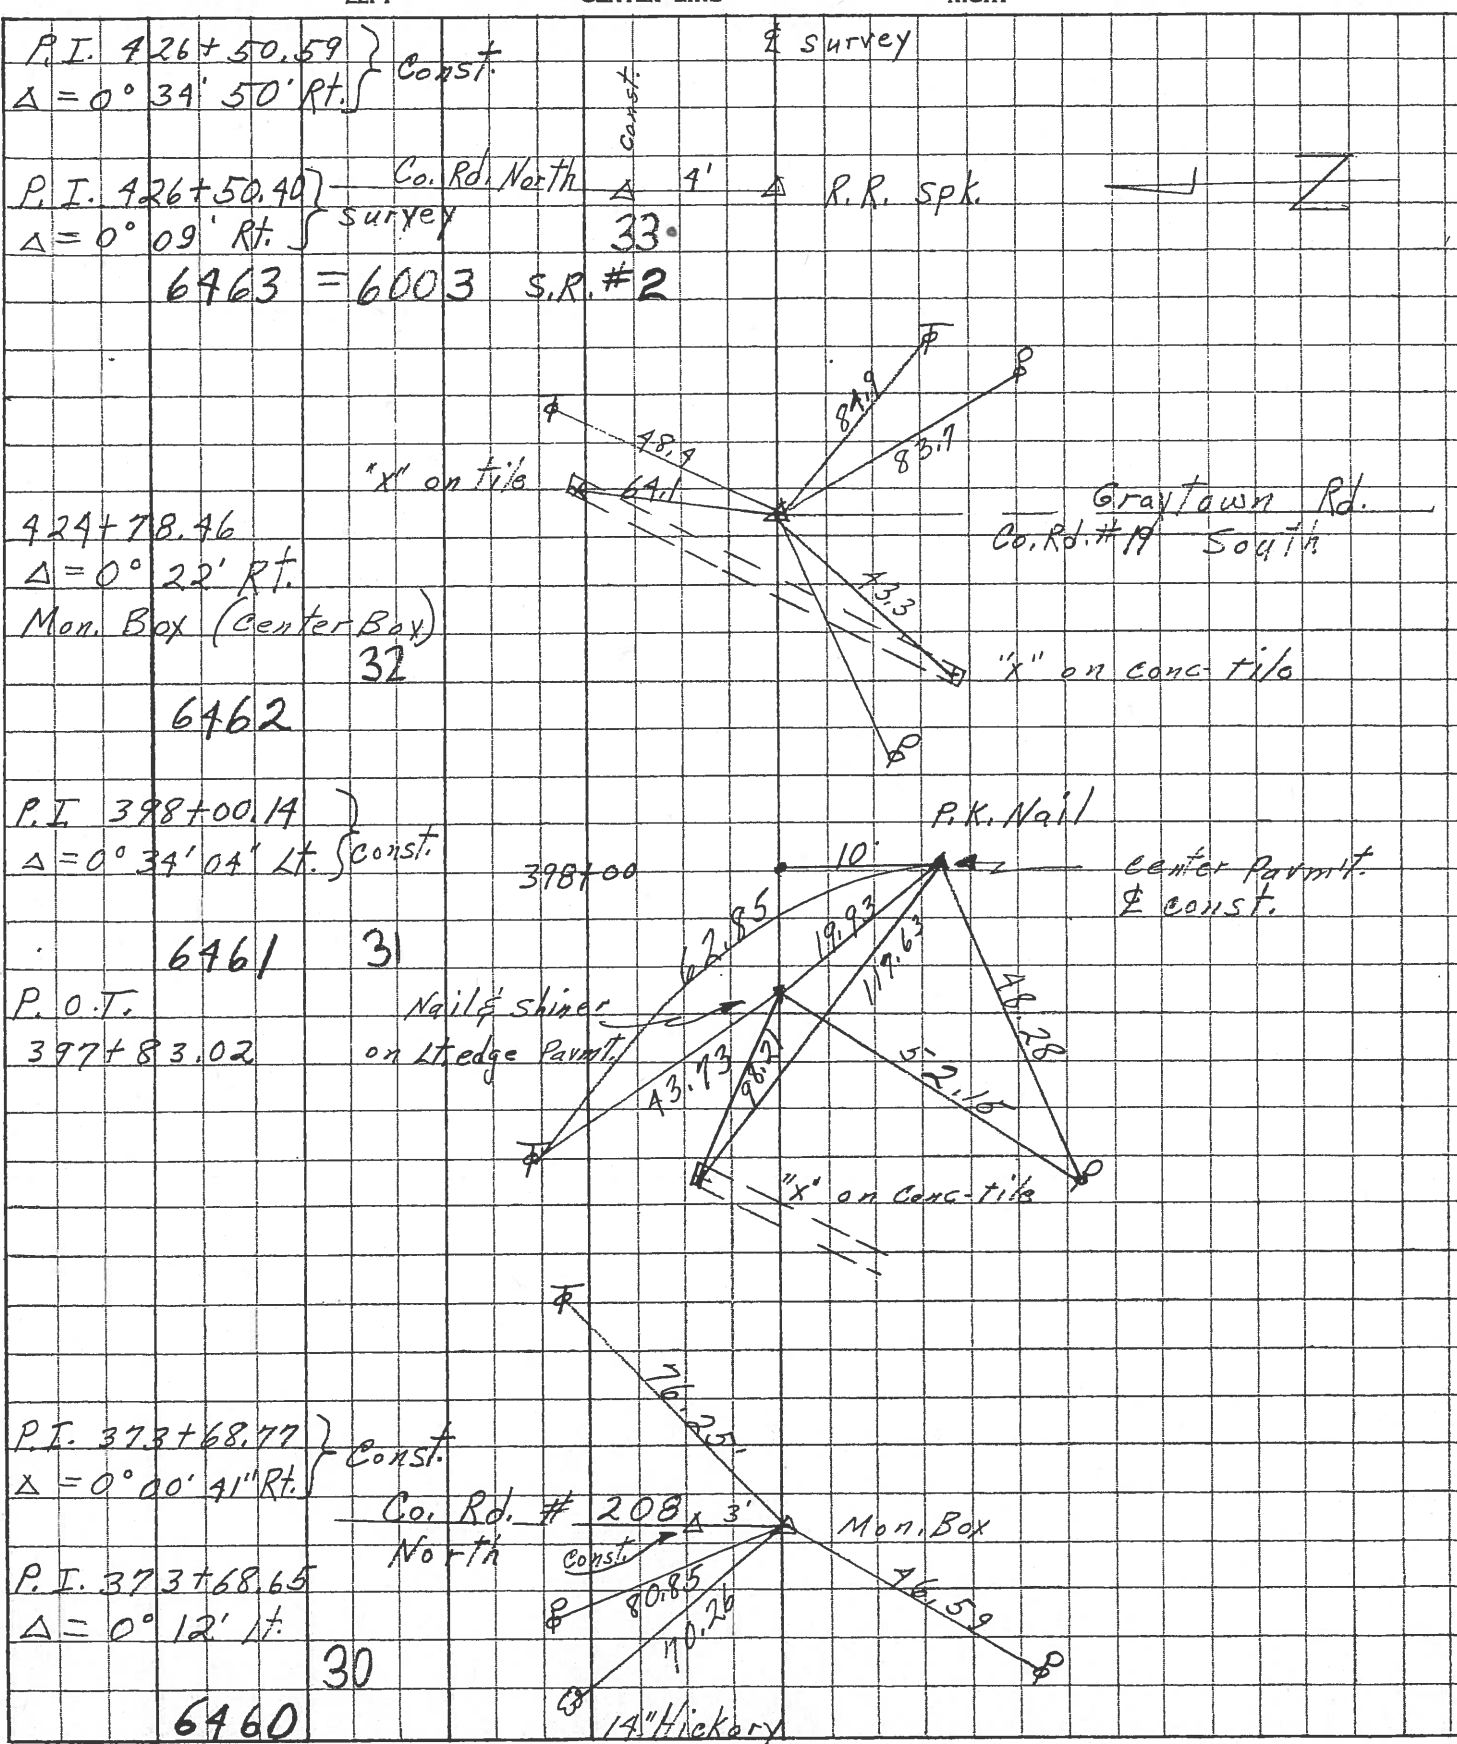 ℄ survey
P.I. 426+50.59
Δ = 0° 34' 50' Rt.
Const.
Const.
P.I. 426+50.40
Δ = 0° 09' Rt.
survey
Co. Rd. North
4'
R.R. spk.
Z
33
6463 = 6003 S.R. #2
84.9
83.7
48.4
"x" on tile
64.1
Graytown Rd.
Co. Rd. #19 South
424+78.46
Δ = 0° 22' Rt.
Mon. Box (Center Box)
43.3
32
"x" on conc-tile
6462
P.I 398+00.14
Δ = 0° 34' 04" Lt.
Const.
P.K. Nail
398+00
10'
Center Pavm't.
℄ const.
62.85
19.93
117.63
48.28
6461 31
P.O.T.
397+83.02
Nail & shiner
on Lt edge Pavmt.
43.73
98.2
52.15
"x" on Conc-tile
76.25'
P.I. 373+68.77
Δ = 0° 00' 41" Rt.
Const.
Co. Rd. # 208
North
3'
Mon. Box
Const.
P.I. 373+68.65
Δ = 0° 12' Lt.
80.85
70.26
46.59
30
6460
14" Hickory